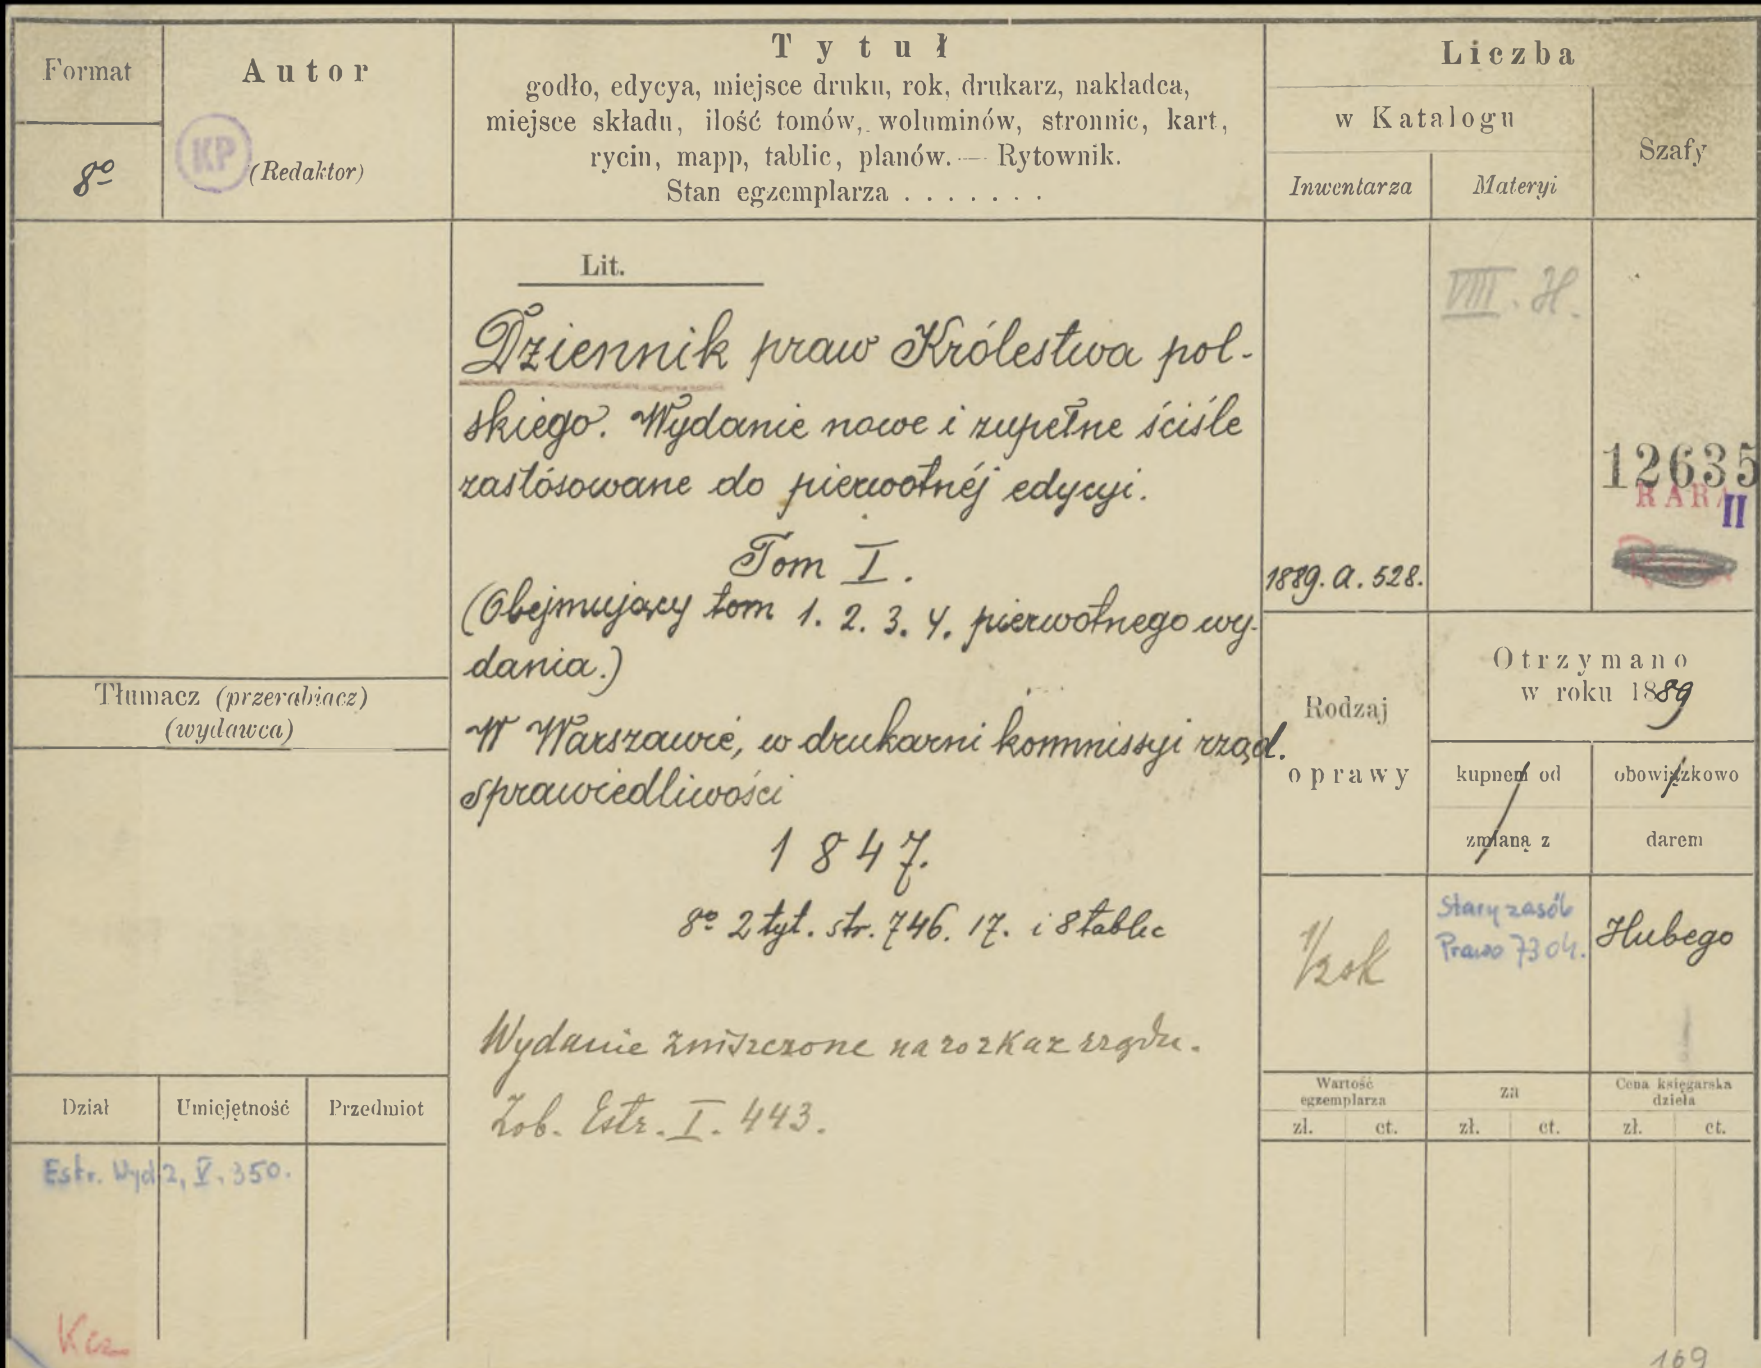 Format
8º
Autor
KP
(Redaktor)
Tytuł
godło, edycya, miejsce druku, rok, drukarz, nakładca,
miejsce składu, ilość tomów, woluminów, stronnic, kart,
rycin, mapp, tablic, planów. — Rytownik.
Stan egzemplarza . . . . . . .
Liczba
w Katalogu
Inwentarza
Materyi
Szafy
Lit.
Dziennik praw Królestwa pol-
skiego. Wydanie nowe i zupełne ściśle
zastósowane do pierwotnéj edycyi.
Tom I.
(Obejmujący tom 1. 2. 3. 4. pierwotnego wy-
dania.)
W Warszawie, w drukarni kommissyi rząd.
sprawiedliwości
1847.
8º 2 tyt. str. 746. 17. i 8 tablic
Wydanie zniszczone na rozkaz rządu.
Zob. Estr. I. 443.
VIII. H.
12635
RARA
II
1889. A. 528.
Tłumacz (przerabiacz)
(wydawca)
Rodzaj
oprawy
Otrzymano
w roku 1889
kupnem od
obowiązkowo
zmianą z
darem
1/2 sk
Stary zasób
Prawo 7304.
Hubego
Dział
Umiejętność
Przedmiot
Estr. Wyd 2, V. 350.
Wartość
egzemplarza
za
Cena księgarska
dzieła
zł.
ct.
zł.
ct.
zł.
ct.
169